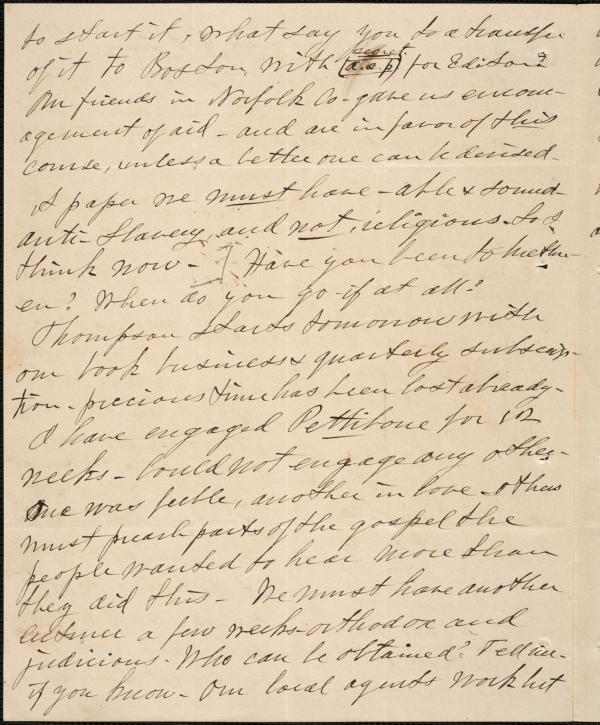 to start it, what say you to a transfer
of it to Boston, with secret (a.s.p) for Edison?
Our friends in Norfolk Co- gave us encour-
agement of aid - and are in favor of this
course, unless a better one can be devised-
A paper we must have - able & sound-
anti-slavery, and not, religious. So I
think now - Have you been to Methu-
en? When do you go - if at all?
Thompson starts tomorrow with
our book business & quarterly subscrip-
tion - precious time has been lost already-
I have engaged Pettibone for 12
weeks - Could not engage any other-
One was feeble, another in love - others
must preach parts of the gospel the
people wanted to hear more than
they did this - We must have another
lecturer a few weeks - orthodox and
judicious - Who can be obtained? Tell me-
if you know - Our local agents work but